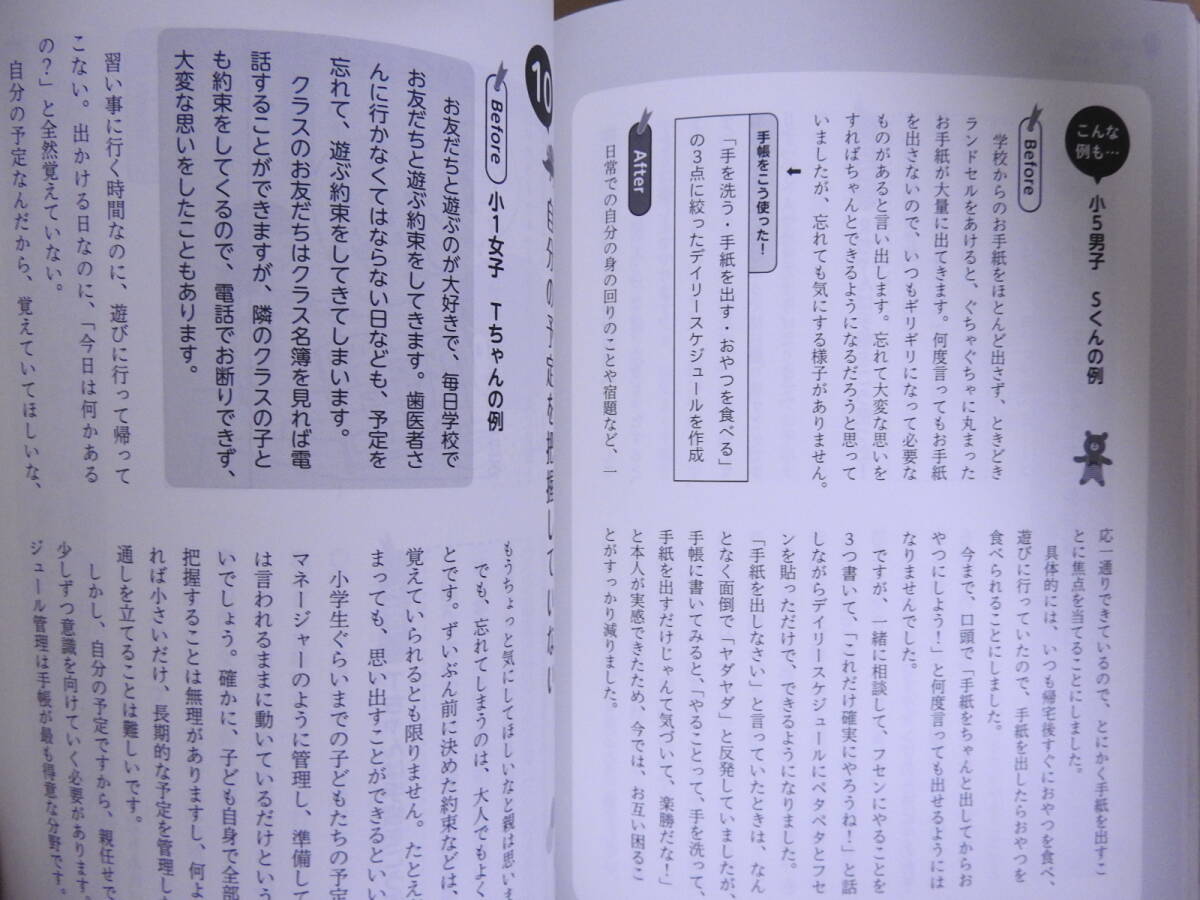 こんな
例も…
小5男子 Sくんの例
Before
学校からのお手紙をほとんど出さず、ときどき
ランドセルをあけると、ぐちゃぐちゃに丸まった
お手紙が大量に出てきます。何度言ってもお手紙
を出さないので、いつもギリギリになって必要な
ものがあると言い出します。忘れて大変な思いを
すればちゃんとできるようになるだろうと思って
いましたが、忘れても気にする様子がありません。
手帳をこう使った！
「手を洗う・手紙を出す・おやつを食べる」
の3点に絞ったデイリースケジュールを作成
After
日常での自分の身の回りのことや宿題など、一
応一通りできているので、とにかく手紙を出すこ
とに焦点を当てることにしました。
具体的には、いつも帰宅後すぐにおやつを食べ、
遊びに行っていたので、手紙を出したらおやつを
食べられることにしました。
今まで、口頭で「手紙をちゃんと出してからお
やつにしよう！」と何度言っても出せるようには
なりませんでした。
ですが、一緒に相談して、フセンにやることを
3つ書いて、「これだけ確実にやろうね！」と話
しながらデイリースケジュールにペタペタとフセ
ンを貼っただけで、できるようになりました。
「手紙を出しなさい」と言っていたときは、なん
となく面倒で「ヤダヤダ」と反発していましたが、
手帳に書いてみると、「やることって、手を洗って、
手紙を出すだけじゃんって気づいて、楽勝だな！」
と本人が実感できたため、今では、お互い困るこ
とがすっかり減りました。
10
自分の予定を把握していない
Before
小1女子 Tちゃんの例
お友だちと遊ぶのが大好きで、毎日学校で
お友だちと遊ぶ約束をしてきます。歯医者さ
んに行かなくてはならない日なども、予定を
忘れて、遊ぶ約束をしてきてしまいます。
クラスのお友だちはクラス名簿を見れば電
話することができますが、隣のクラスの子と
も約束をしてくるので、電話でお断りできず、
大変な思いをしたこともあります。
習い事に行く時間なのに、遊びに行って帰って
こない。出かける日なのに、「今日は何かある
の？」と全然覚えていない。
自分の予定なんだから、覚えていてほしいな、
もうちょっと気にしてほしいなと親は思いま
でも、忘れてしまうのは、大人でもよく
とです。ずいぶん前に決めた約束などは、
覚えていられるとも限りません。たとえ
まっても、思い出すことができるとい
小学生ぐらいまでの子どもたちの予定
マネージャーのように管理し、準備して
は言われるままに動いているだけという
いでしょう。確かに、子ども自身で全部
把握することは無理がありますし、何よ
れば小さいだけ、長期的な予定を管理し
通しを立てることは難しいです。
しかし、自分の予定ですから、親任せで
少しずつ意識を向けていく必要があります。
ジュール管理は手帳が最も得意な分野です。